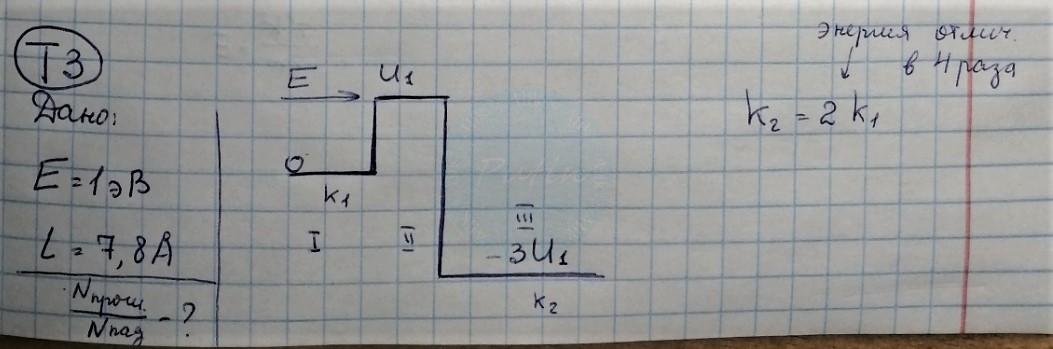 Т3
Дано:
E = 1 эВ
L = 7,8 А
Nпрош.
Nпад
- ?
E
U₁
0
k₁
I
II
III
- 3U₁
k₂
Энергия отлич.
в 4 раза
k₂ = 2 k₁